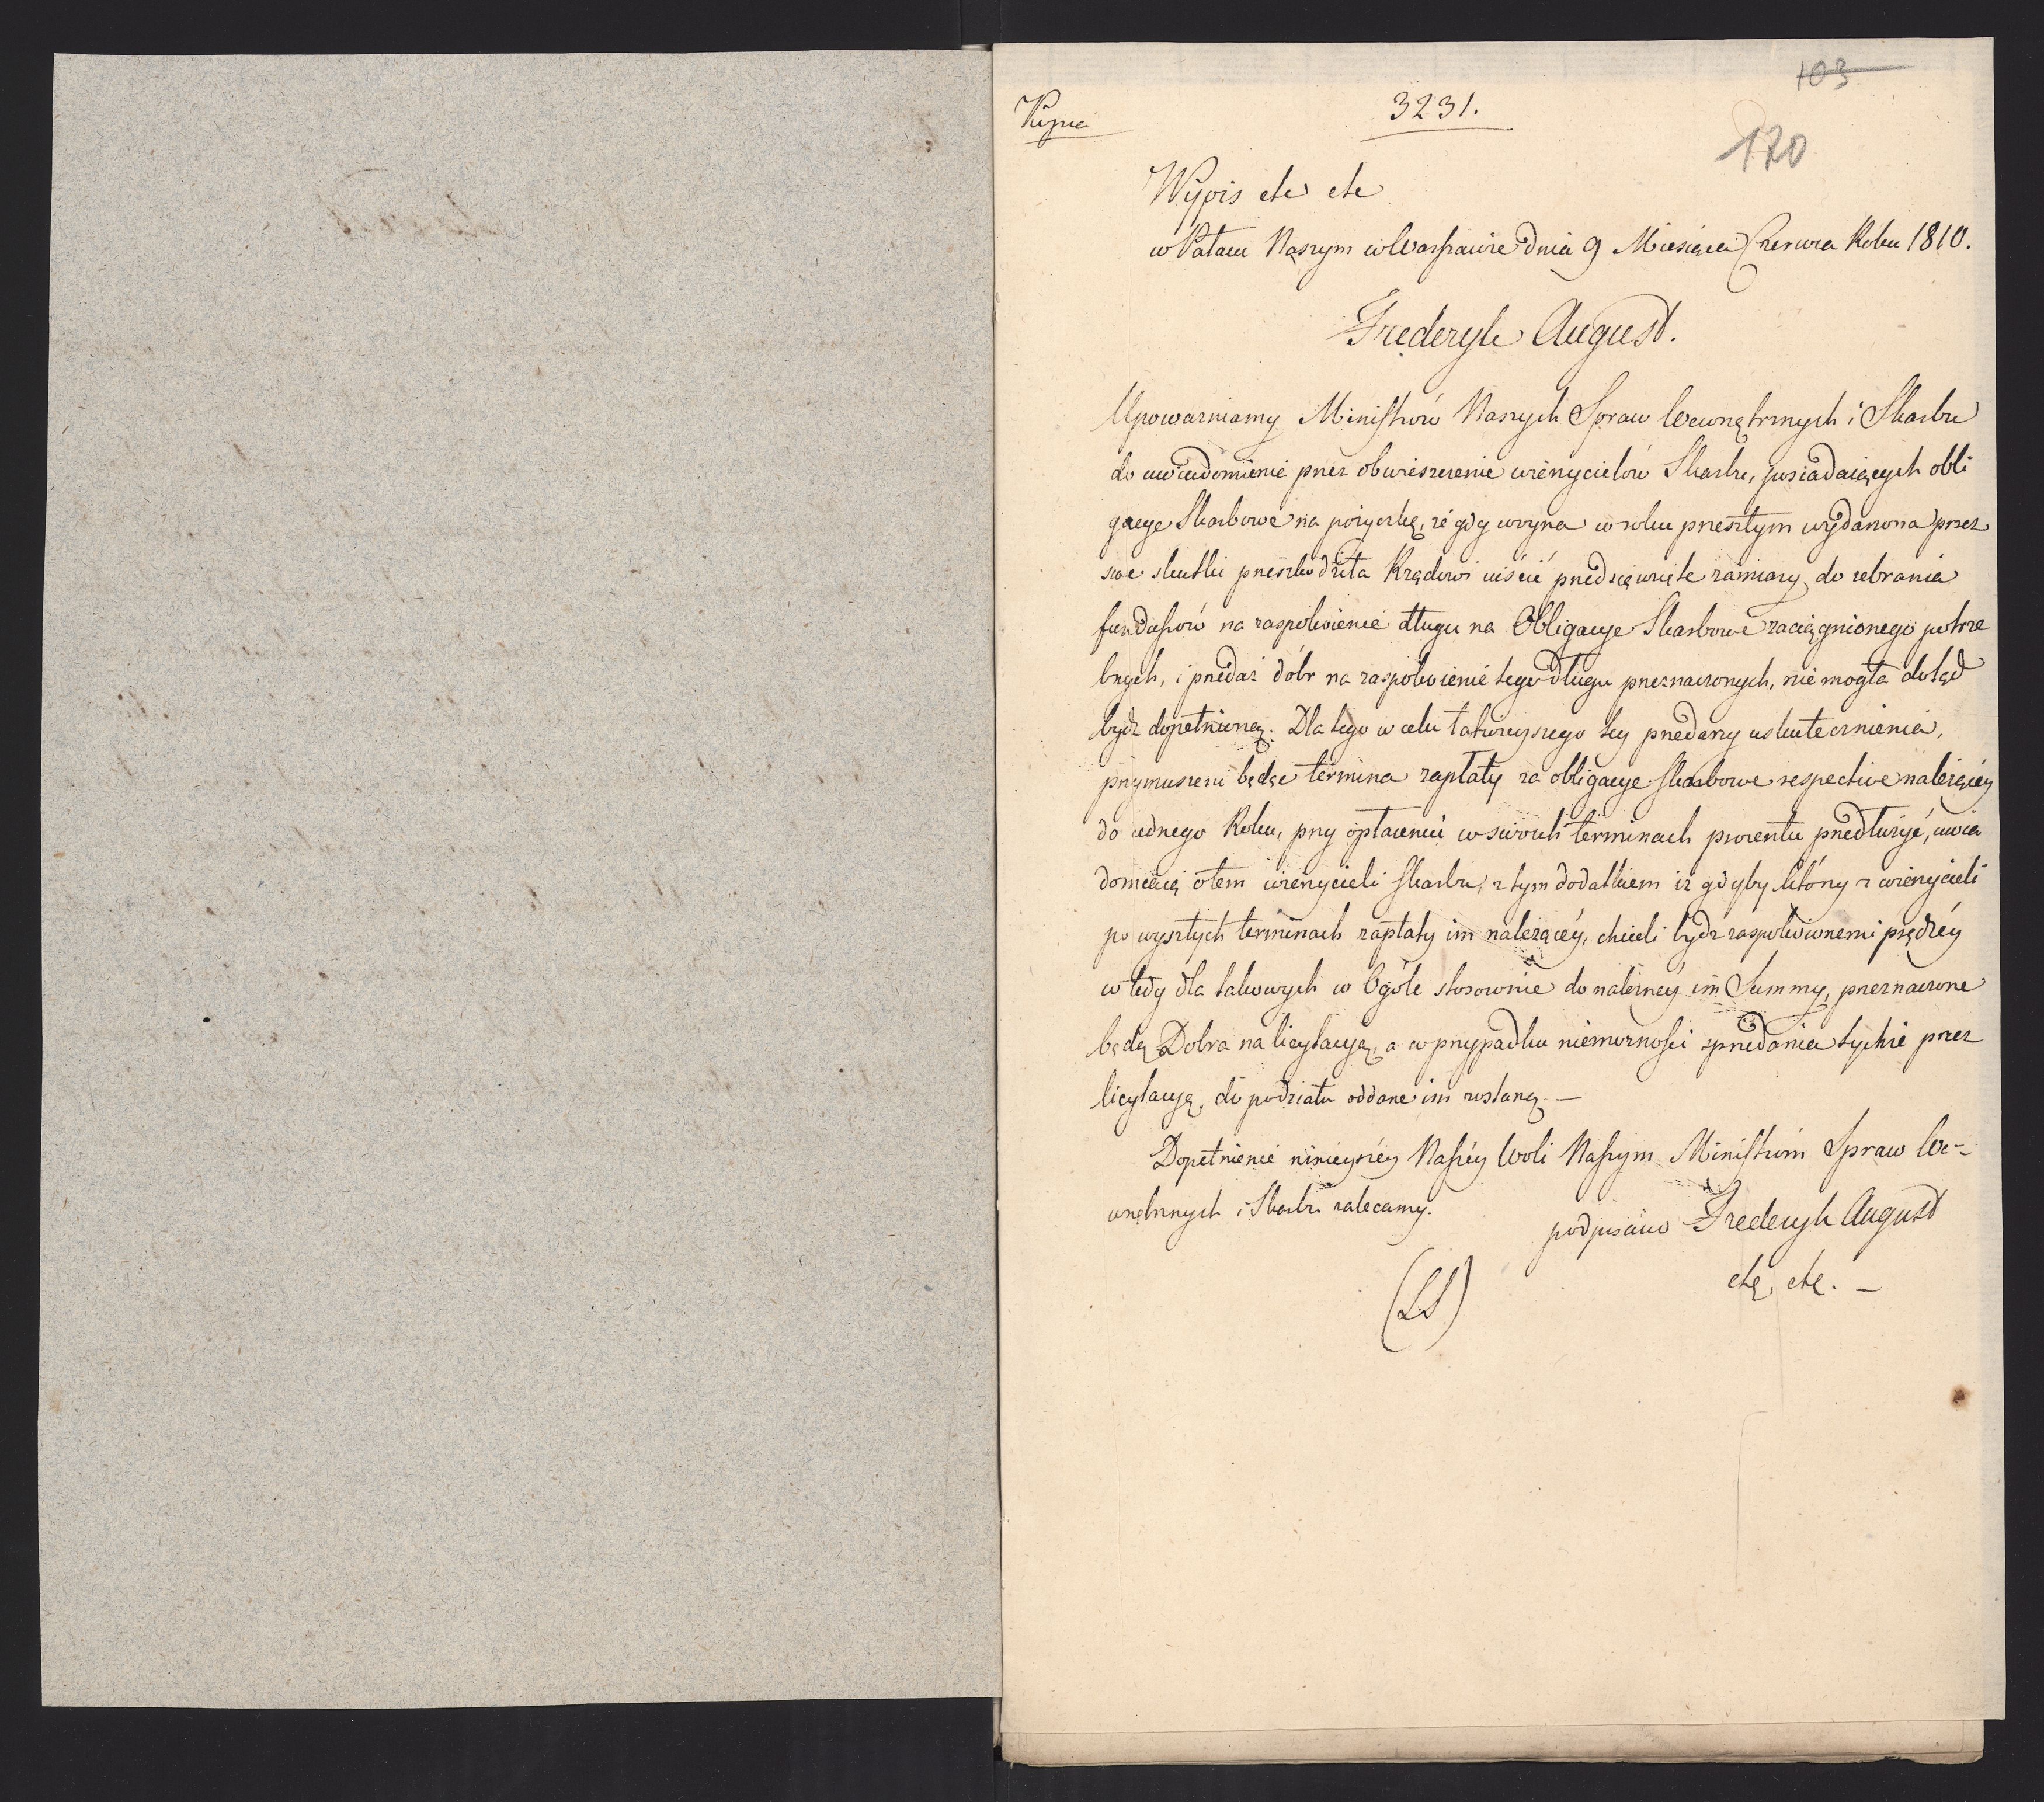 103
Kopia
3231.
120
Wypis etc etc
w Pałacu Naszym w Warszawie dnia 9 Miesiąca Czerwca Roku 1810.
Frederyk August.
Upoważniamy Ministrów Naszych Spraw Wewnętrznych i Skarbu
do uwiadomienia przez obwieszczenie wierzycielów Skarbu, posiadaiących obli
gacye Skarbowe na pożyczkę, że gdy woyna w roku przeszłym wydanona przez
swe skutki przeszkodziła Rządowi uiścić przedsięwzięte zamiary do zebrania
funduszów na zaspokoienie długu na Obligacye Skarbowe zaciągnionego potrze
bnych, i przedaż dóbr na zaspokoienie tego długu przeznaczonych, nie mogła dotąd
bydź dopełnioną. Dla tego w celu łatwieyszego tey przedaży uskutecznienia,
przymuszeni będąc termina zapłaty za obligacye skarbowe respective należącéy
do iednego Roku, przy opłaceniu w swoich terminach procentu przedłużyć, uwia
domiaią o tem wierzycieli skarbu, z tym dodatkiem iż gdyby którzy z wierzycieli
po wyszłych terminach zapłaty im należącéy, chcieli bydź zaspokoionemi prędzéy
w tedy dla takowych w Ogóle stosownie do należnéy im Summy, przeznaczone
będą Dobra na licytacyą, a w przypadku niemożności sprzedania tychże przez
licytacyą, do podziału oddane im zostaną. —
Dopełnienie ninieyszéy Naszéy Woli Naszym Ministróm Spraw We-
wnętrznych i Skarbu zalecamy.
podpisano Frederyk August
(LS)
etc, etc. —